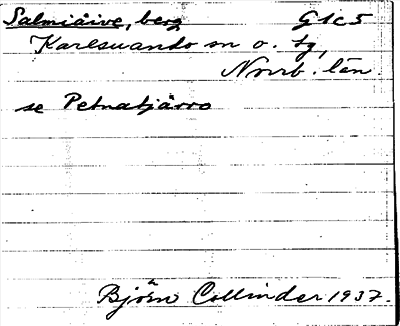 Salmiåive, berg G1c5
Karesuando sn o. tg,
Norrb. län.
se Petnatjårro
Björn Collinder 1937.